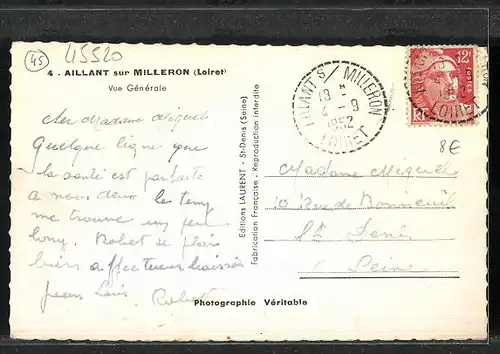 45
45520
4 - AILLANT sur MILLERON (Loiret)
Vue Générale
Cher Madame Miguel
Quelque ligne que
la santé est parfaite
a nous deux le temp
me trouve un peu
long. Robert se plais
bien affectueux baisés
Robert
Editions LAURENT - St-Denis (Seine)
Fabrication Française - Reproduction interdite
AILLANT S/ MILLERON
18 H
4 - 9
1952
LOIRET
12F
RF
LOIRET
8€
Madame Miguel
20 Rue de Bonneuil
St Denis
Seine
Photographie Véritable